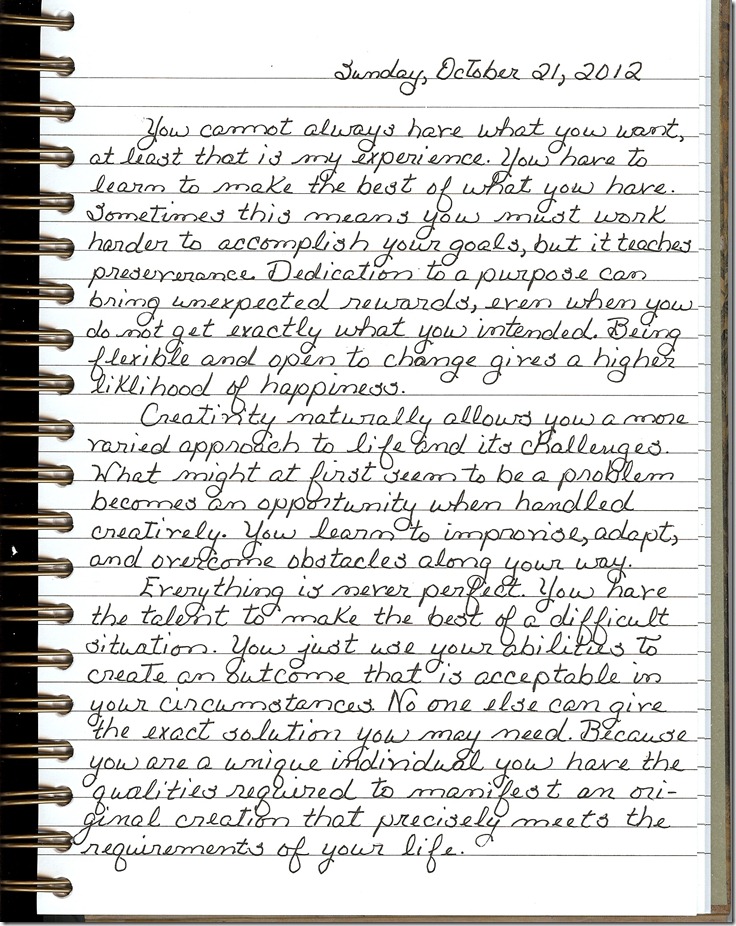 Sunday, October 21, 2012
You cannot always have what you want,
at least that is my experience. You have to
learn to make the best of what you have.
Sometimes this means you must work
harder to accomplish your goals, but it teaches
preseverance. Dedication to a purpose can
bring unexpected rewards, even when you
do not get exactly what you intended. Being
flexible and open to change gives a higher
liklihood of happiness.
Creativity naturally allows you a more
varied approach to life and its challenges.
What might at first seem to be a problem
becomes an opportunity when handled
creatively. You learn to improvise, adapt,
and overcome obstacles along your way.
Everything is never perfect. You have
the talent to make the best of a difficult
situation. You just use your abilities to
create an outcome that is acceptable in
your circumstances. No one else can give
the exact solution you may need. Because
you are a unique individual you have the
qualities required to manifest an ori-
ginal creation that precisely meets the
requirements of your life.